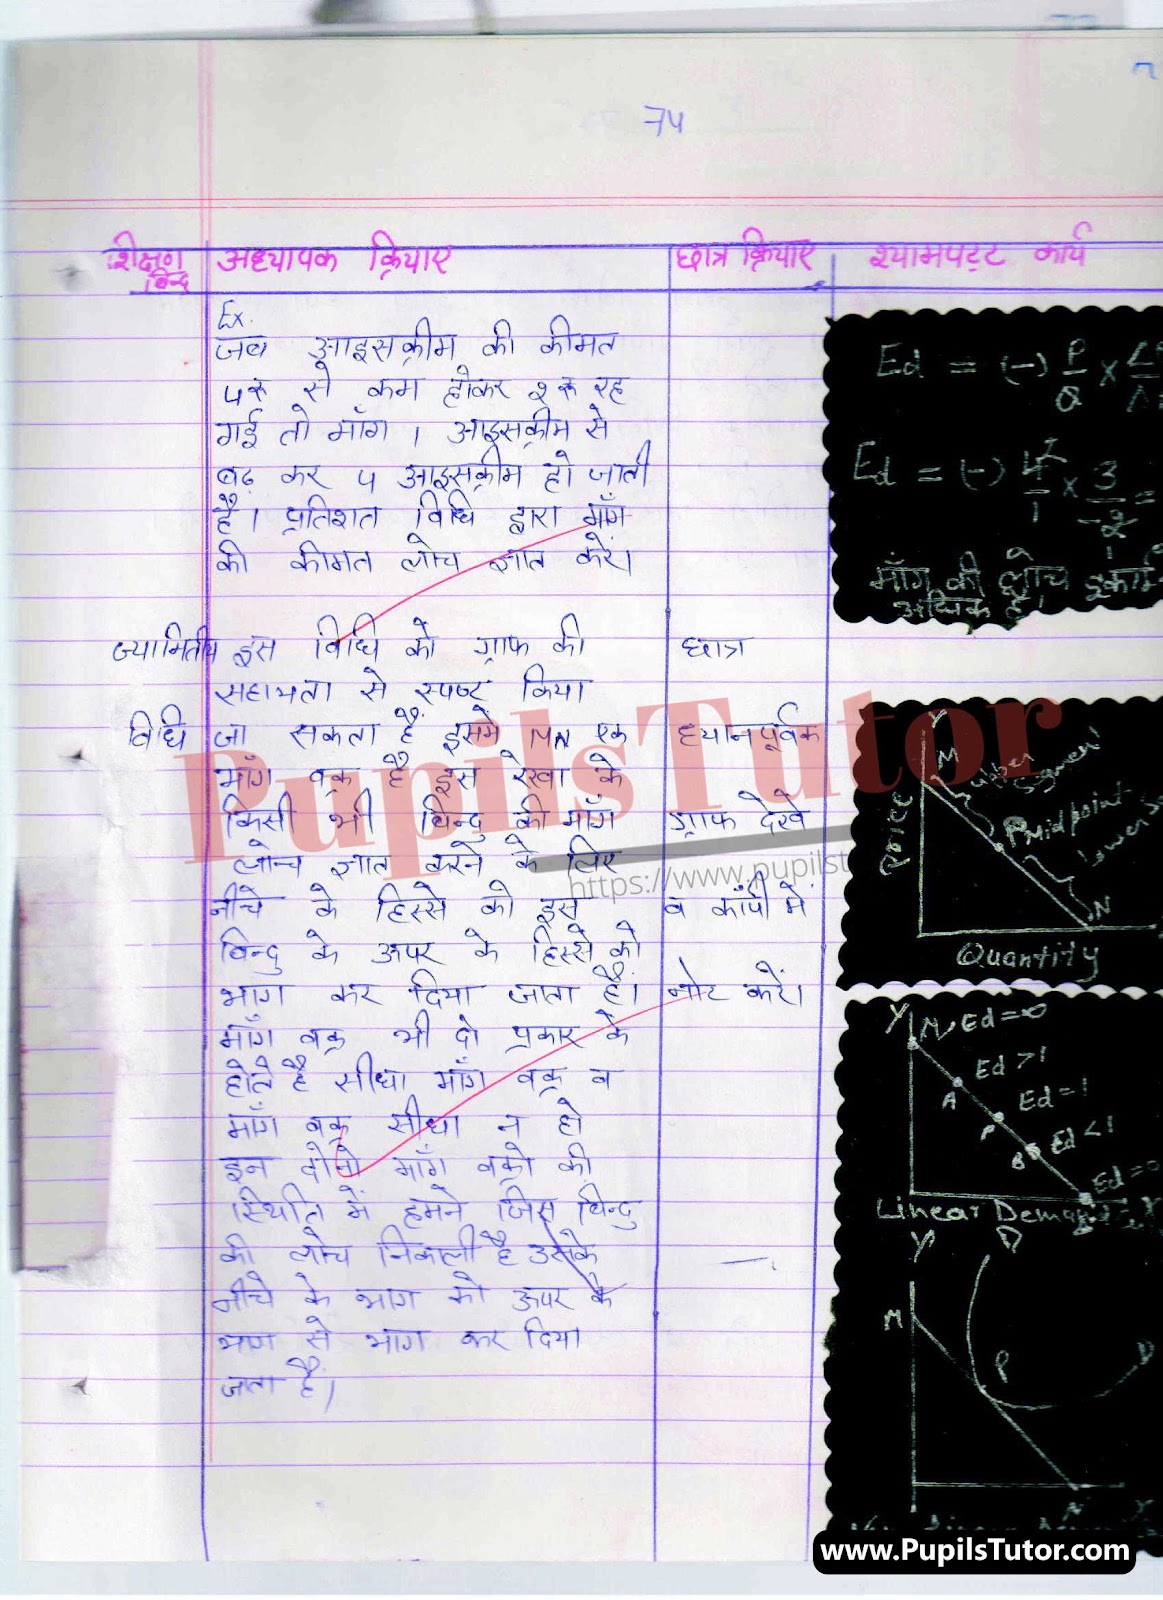 74
शिक्षण बिन्दु
अध्यापक क्रियाएं
छात्र क्रियाएं
श्यामपट्ट कार्य
Ex.
जब आइसक्रीम की कीमत
4रू से कम होकर 2रू रह
गई तो माँग 1 आइसक्रीम से
बढ़ कर 4 आइसक्रीम हो जाती
है। प्रतिशत विधि द्वारा माँग
की कीमत लोच ज्ञात करें।
ज्यामितीय
विधि
इस विधि को ग्राफ की
सहायता से स्पष्ट किया
जा सकता है इसमें MN एक
माँग वक्र है इस रेखा के
किसी भी बिन्दु की माँग
लोच ज्ञात करने के लिए
नीचे के हिस्से को इस
बिन्दु के ऊपर के हिस्से को
भाग कर दिया जाता है।
माँग वक्र भी दो प्रकार के
होते है सीधा माँग वक्र व
माँग वक्र सीधा न हो
इन दोनो माँग वक्रो की
स्थिति में हमने जिस बिन्दु
की लोच निकाली है उसके
नीचे के भाग को ऊपर के
भाग से भाग कर दिया
जाता है।
छात्र
ध्यानपूर्वक
ग्राफ देखे
व कॉपी में
नोट करें।
Ed = (-) P/Q ×
Ed = (-) 4/1 × 3/-2 =
माँग की लोच इकाई
अधिक है।
Y
M
upper segment
P Midpoint
lower
N
Price
Quantity
Y M, Ed = ∞
Ed > 1
A
Ed = 1
P
Ed < 1
B
Ed = 0
Linear Demand
Y D
M
P
D
N X
PupilsTutor
https://www.pupilst
www.PupilsTutor.com